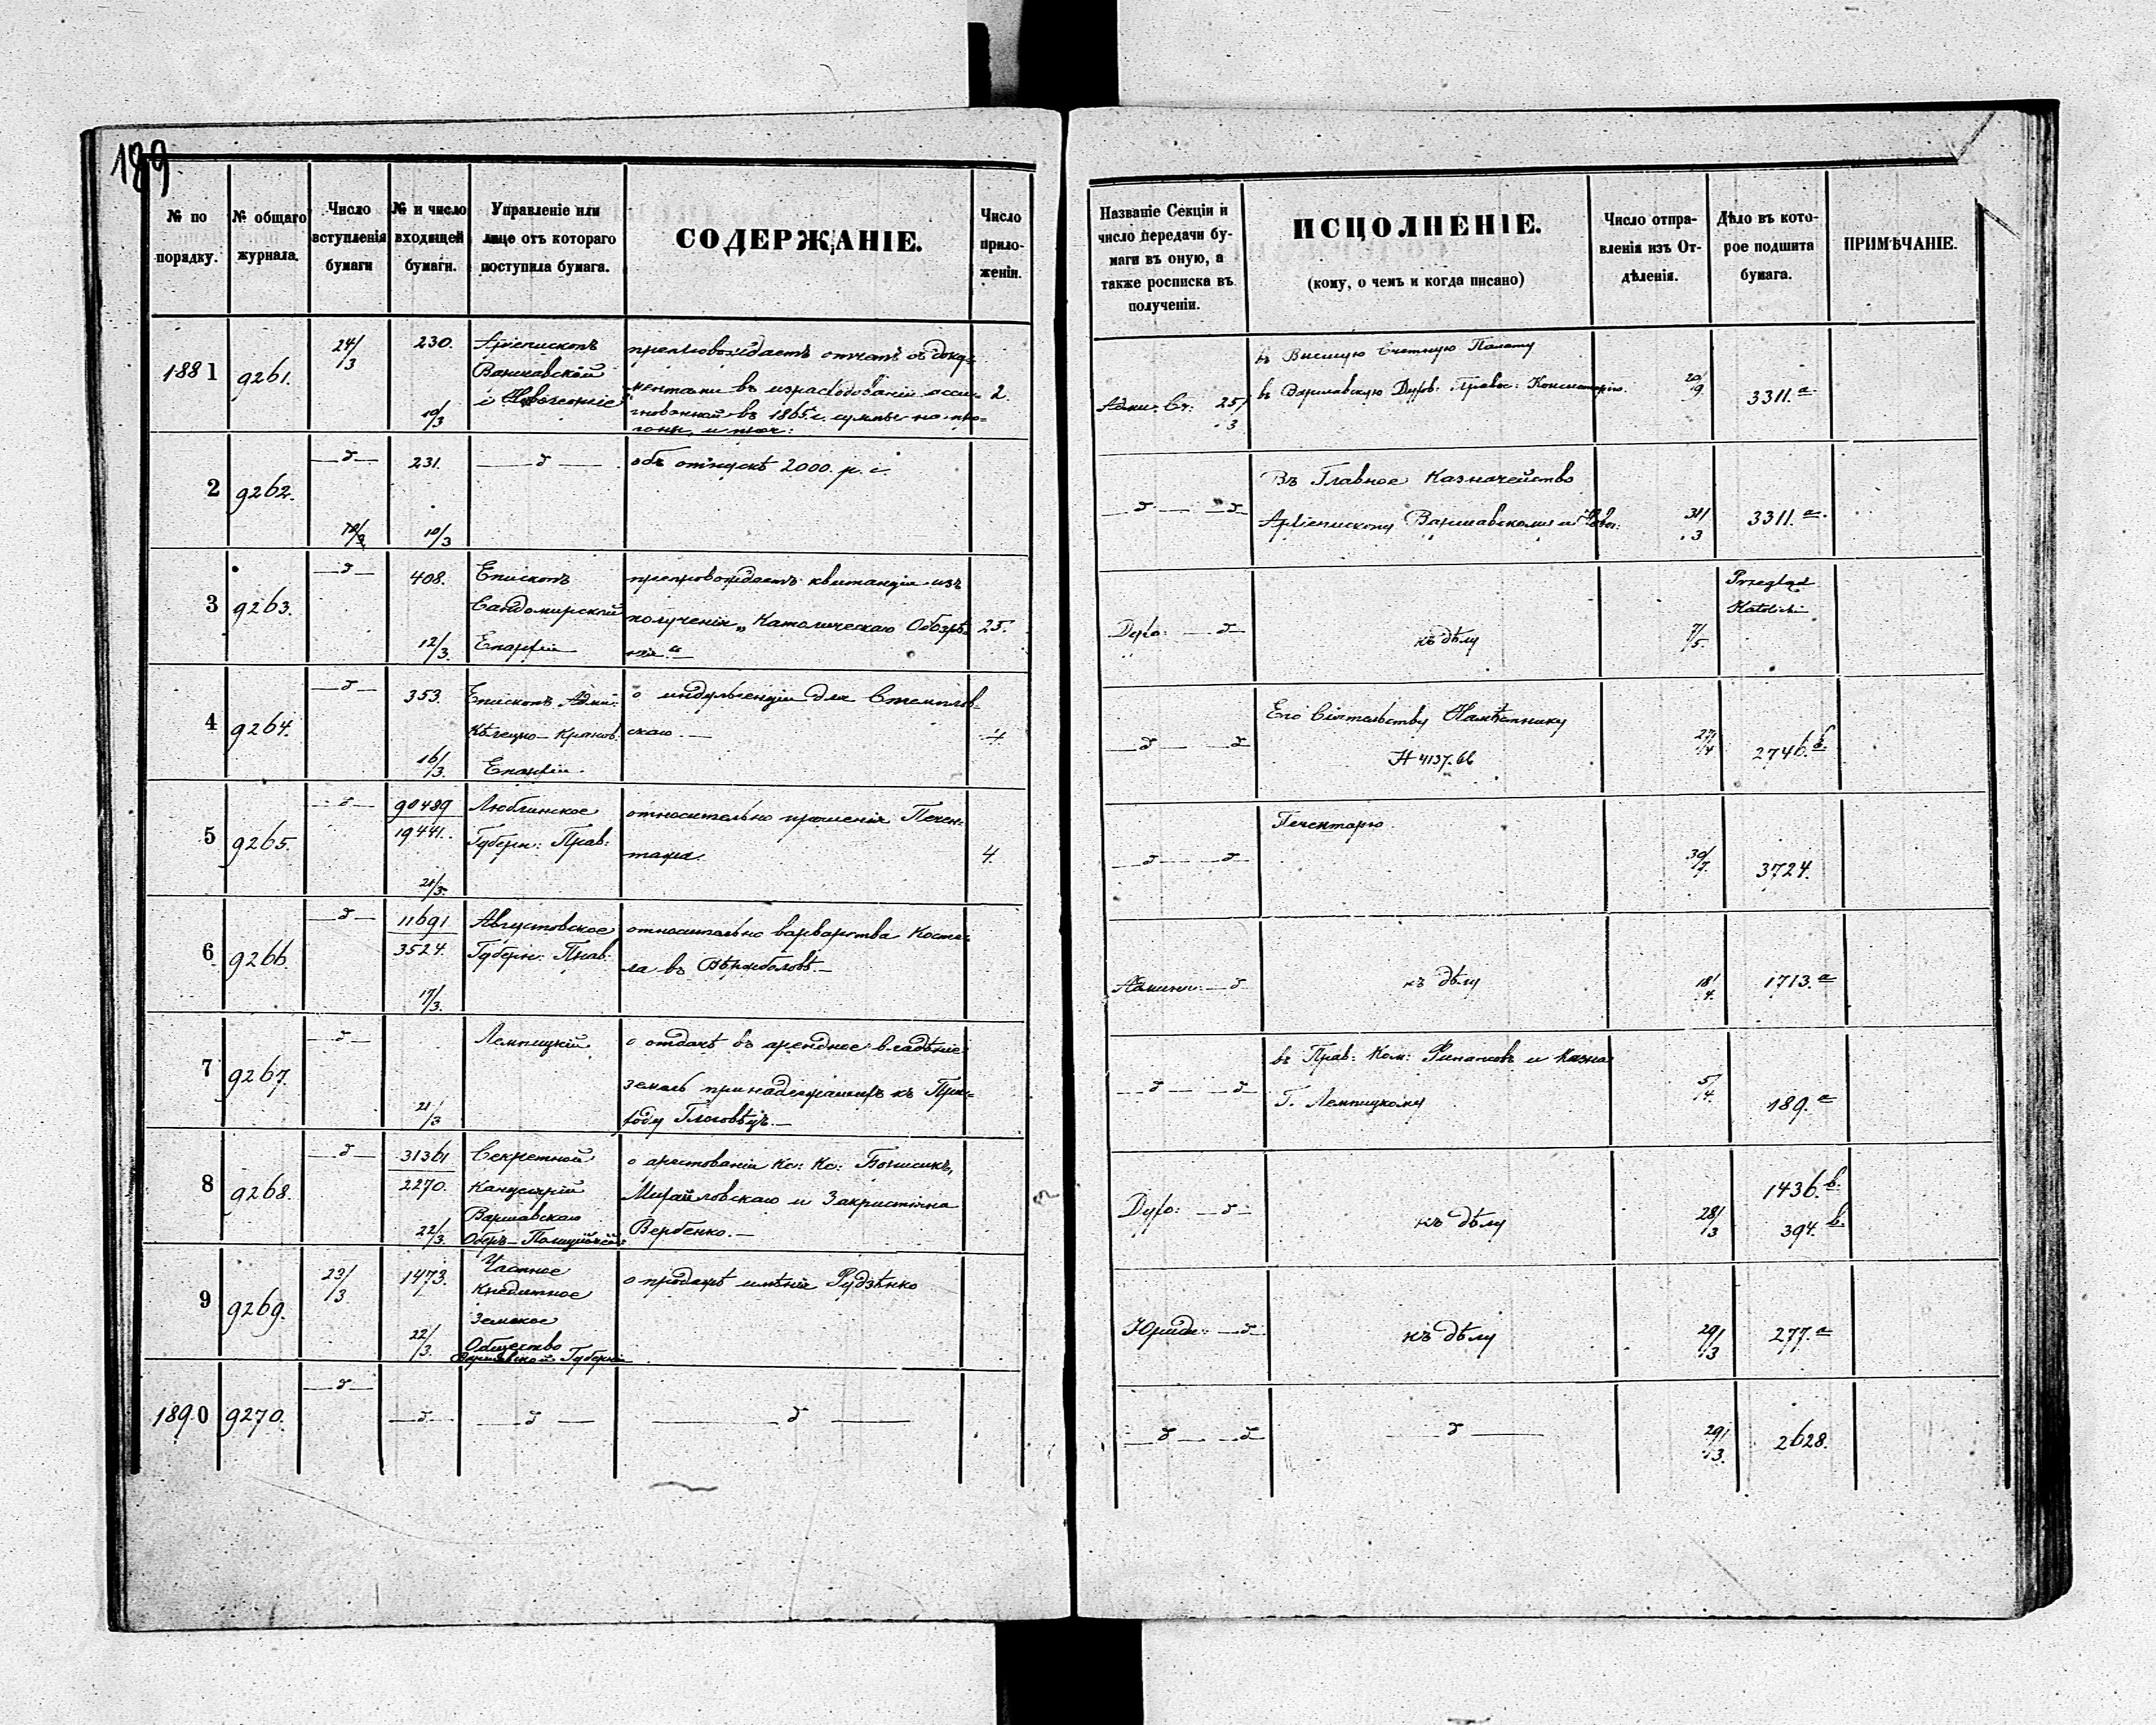 189
№ по порядку.
№ общаго журнала.
Число вступленія бумаги
№ и число входящей бумаги.
Управленіе или лице отъ котораго поступила бумага.
СОДЕРЖАНІЕ.
Число приложеній.
Названіе Секціи и число передачи бумаги въ оную, а также росписка въ полученіи.
ИСПОЛНЕНІЕ.
(кому, о чемъ и когда писано)
Число отправленія изъ Отдѣленія.
Дѣло въ которое подшита бумага.
ПРИМѢЧАНІЕ.
1881
9261.
24/3
230.
19/3
Архіепископъ
Варшавскій
препровождаетъ отчетъ съ доку-
ментами въ израсходованіи асси-
гнованной въ 1865 г. суммы на про-
гоны, и проч:
2.
25/3
въ Высшую Счетную Палату
въ Варшавскую Духов: Правос: Консисторію.
20/9
3311. а
2
9262.
д
231.
19/3
д
объ отпускѣ 2000. р. с
д д
Въ Главное Казначейство
Архіепископу Варшавскому и Новог:
31/3
3311. а
3
9263.
д
408.
12/3.
Епископъ
Сандомирской
Епархіи
препровождаетъ квитанціи изъ
полученія „Католическаго Обозрѣ-
нія“
25.
Духо: д
къ дѣлу
7/5.
Przegląd
Katolicki
4
9264.
д
353.
16/3.
Епископъ Адми:
Кѣлецко-Краков:
Епархіи.
о индульгенціи для
скаго.
д д
Его Сіятельству Намѣстнику
№ 4137.66
27/4
2746. b.
5
9265.
д
90489
19441.
21/3.
Люблинское
Губерн: Прав:
относительно прошенія Печен-
тара.
4.
д д
Печентарю.
30/7.
3724.
6
9266.
д
11691
3524.
17/3.
Августовское
Губерн: Прав:
относительно варварства Косте-
ла въ
д
къ дѣлу
18/4.
1713. а
7
9267.
д
21/3
Лемпицкій
о отдачѣ въ арендное владѣніе
земель принадлежащихъ къ При-
ходу Глоговѣцъ.
д д
въ Прав: Ком: Финансовъ и Казна
Г. Лемпицкому
5/4.
189. а
8
9268.
д
31361
2270.
22/3.
Секретной
Канцеляріи
Варшавскаго
Оберъ-Полицій
о арестованіи Кс: Кс:
Михайловскаго и Закристіяна
Вербенко.
Духо: д
къ дѣлу
28/3
1436. b.
394. b.
9
9269.
23/3
1473.
22/3.
Частное
Кредитное
Земское
Общество
Варшавской Губерніи
о продажѣ имѣнія Рудзѣнко
Юриди: д
къ дѣлу
29/3
277. а
1890
9270.
д
д
д
д
д д
д
29/3.
2628.